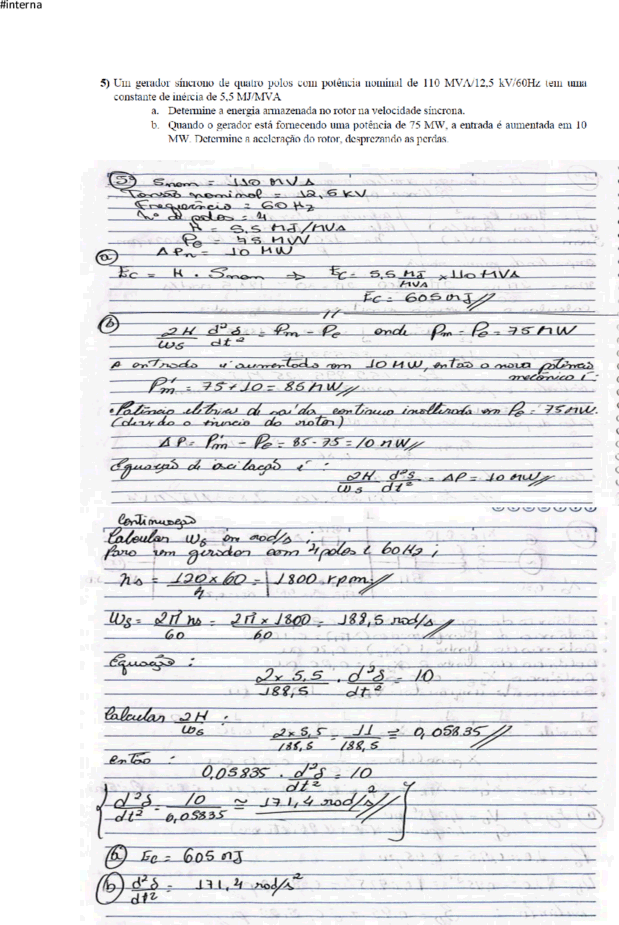 #interna
5) Um gerador síncrono de quatro polos com potência nominal de 110 MVA/12,5 kV/60Hz tem uma
constante de inércia de 5,5 MJ/MVA
a. Determine a energia armazenada no rotor na velocidade síncrona.
b. Quando o gerador está fornecendo uma potência de 75 MW, a entrada é aumentada em 10
MW. Determine a aceleração do rotor, desprezando as perdas.
5) Snom = 110 MVA
Tensão nominal = 12,5 kV
Frequência = 60 Hz
Nº de polos = 4
H = 5,5 MJ/MVA
Pe = 75 MW
ΔPm = 10 MW
a) Ec = H · Snom ⇒ Ec = 5,5 MJ/MVA × 110 MVA
Ec = 605 MJ//
b) 2H/ωs d²δ/dt² = Pm - Pe onde Pm = Pe = 75 MW
A entrada é aumentada em 10 MW, então a nova potência
mecânica é:
P'm = 75 + 10 = 85 MW//
• Potência elétrica de saída continua inalterada em Pe = 75 MW.
(devido a inércia do rotor)
ΔP = P'm - Pe = 85 - 75 = 10 MW//
Equação de acilação é:
2H/ωs d²δ/dt² = ΔP = 10 MW//
Continuação
Calcular ωs em rad/s;
Para um gerador com 4 polos e 60Hz;
ns = 120 × 60/4 = 1800 rpm//
ωs = 2π ns/60 = 2π × 1800/60 = 188,5 rad/s//
Equação:
2 × 5,5/188,5 · d²δ/dt² = 10
Calcular 2H/ωs :
2 × 5,5/188,5 = 11/188,5 ≅ 0,05835//
então :
0,05835 · d²δ/dt² = 10
d²δ/dt² = 10/0,05835 ≅ 171,4 rad/s²//
a) Ec = 605 MJ
b) d²δ/dt² = 171,4 rad/s²